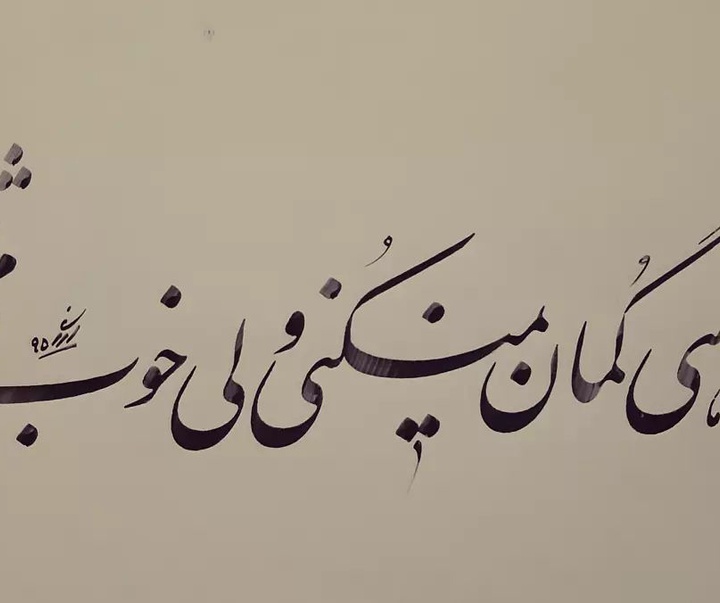 گُمان نمیکُنی ولی خوب
۹۵